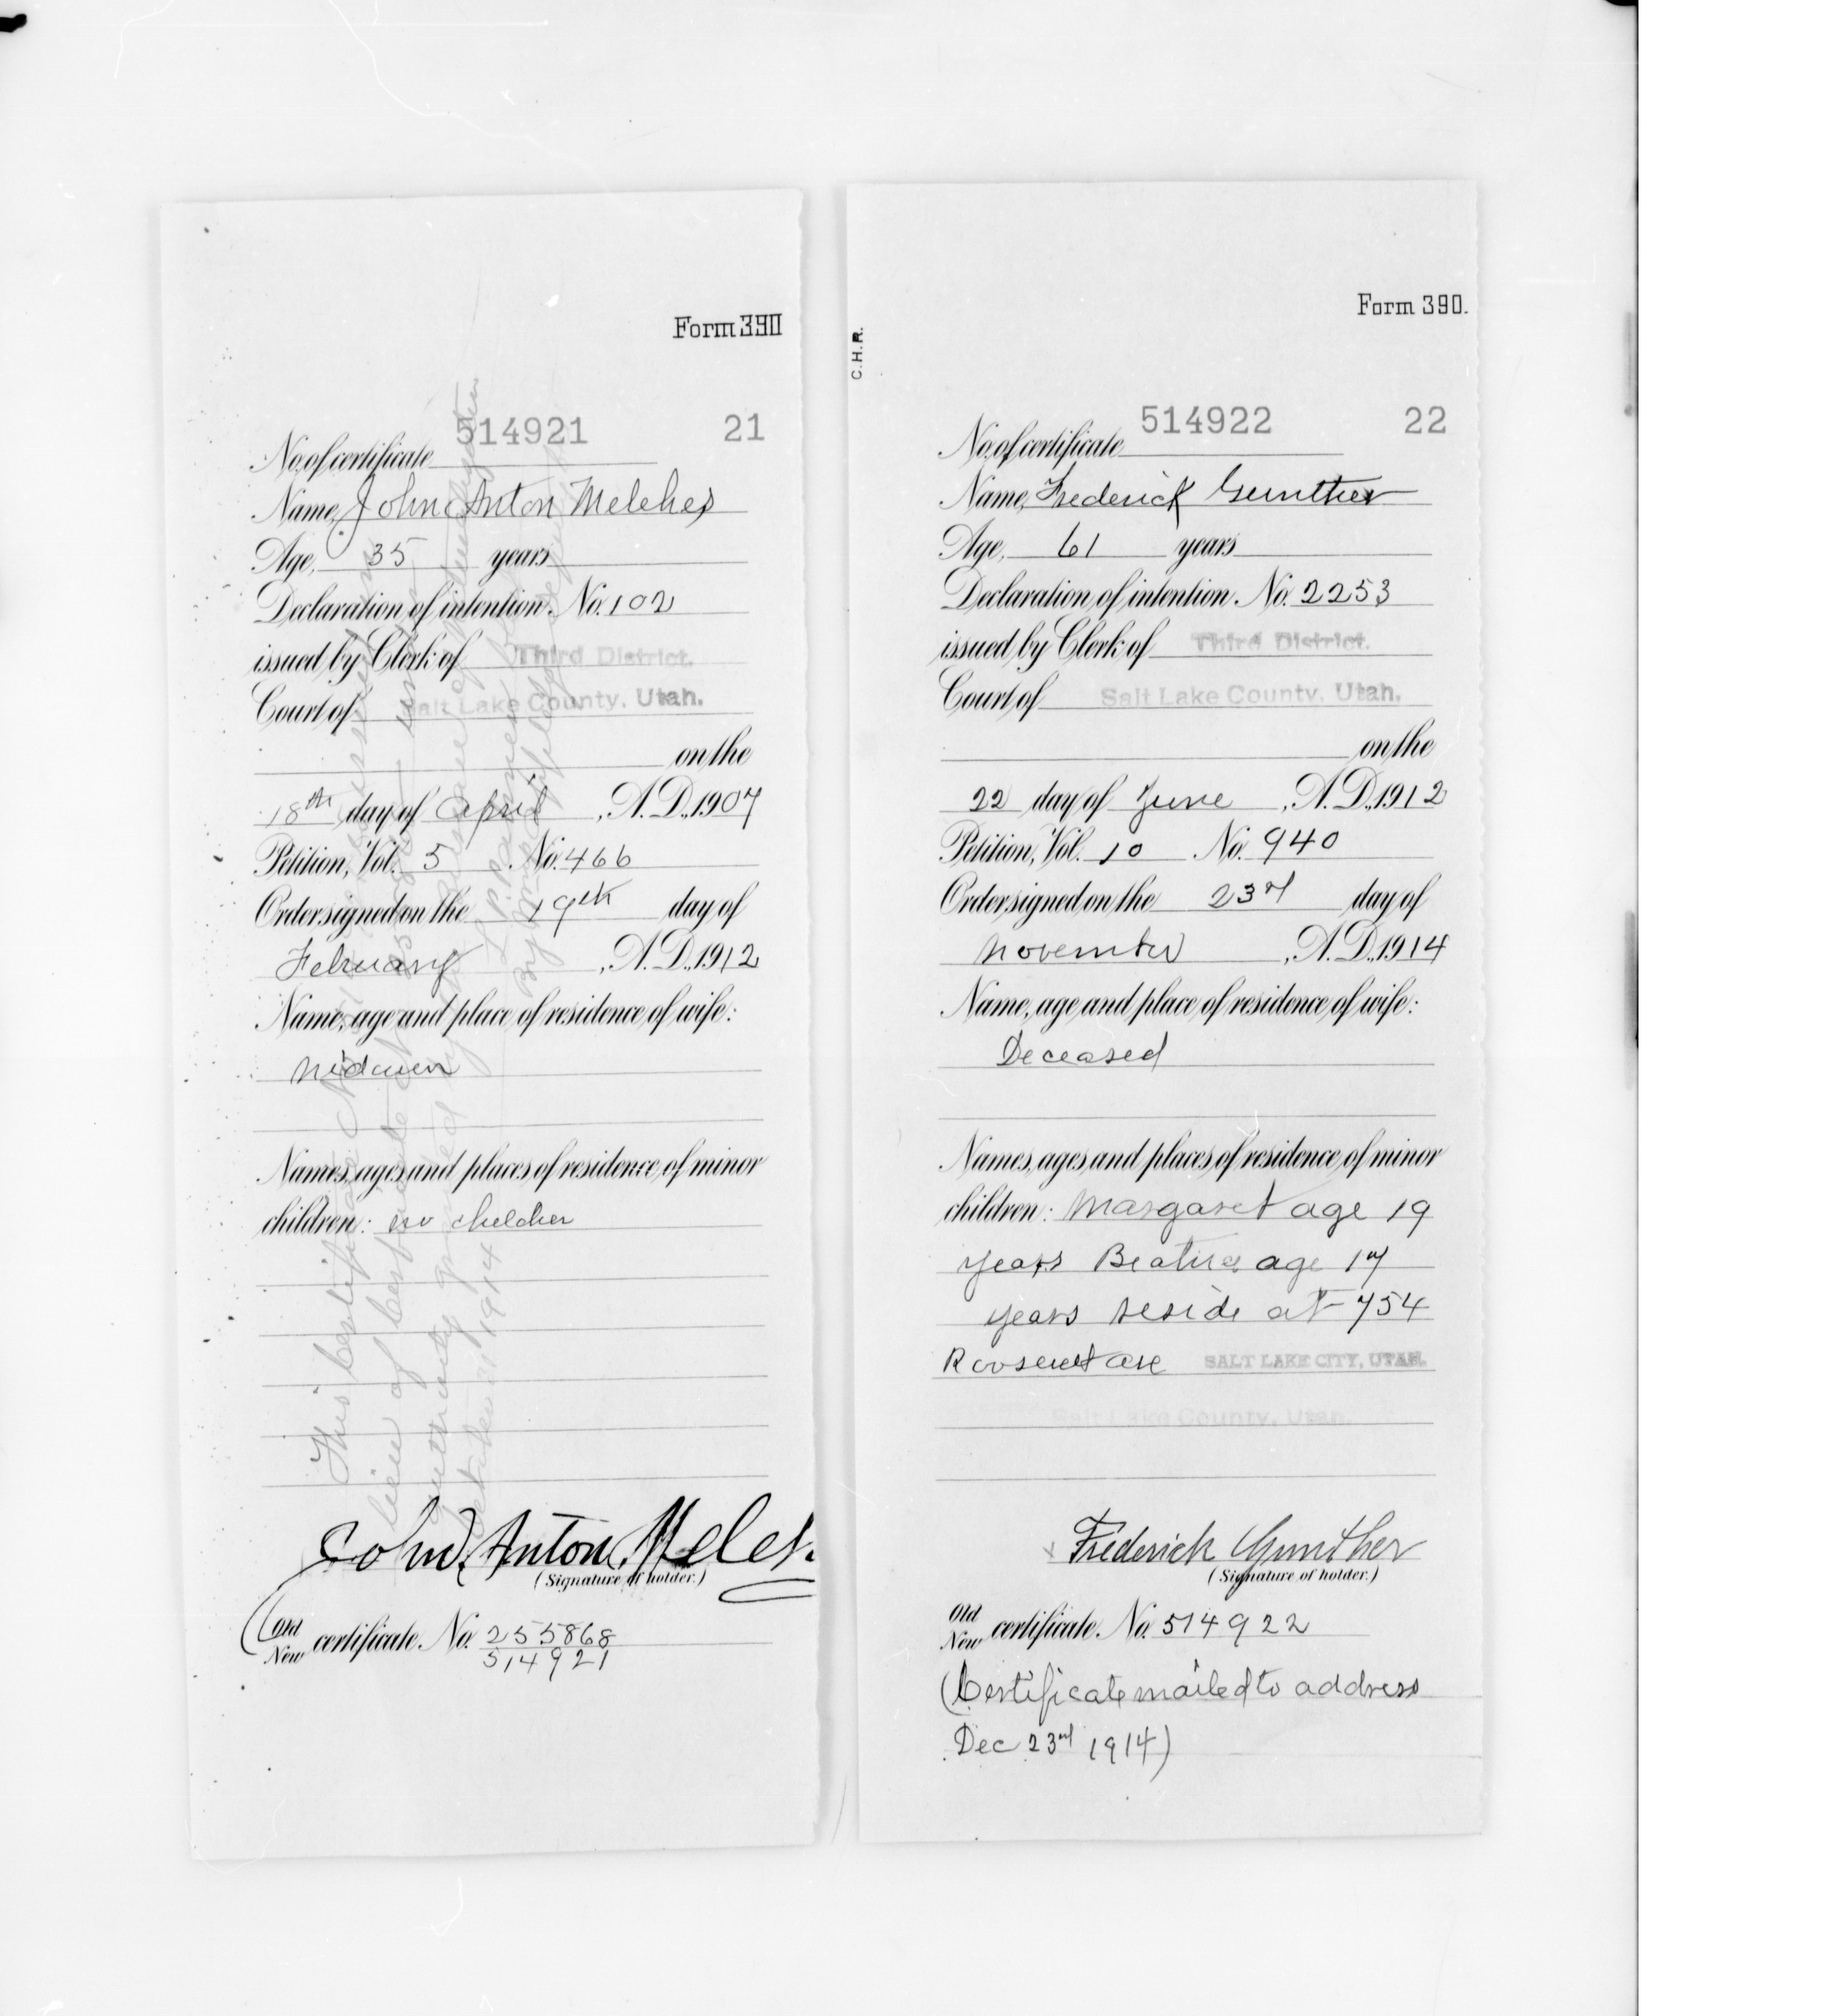 Form 390
514921 21
No. of certificate
Name, John Anton Melches
Age, 35 years
Declaration of intention, No. 102
issued by Clerk of Third District.
Court of Salt Lake County, Utah.
on the
18th day of April, A. D. 1907
Petition, Vol. 5 No. 466
Order signed on the 19th day of
February, A. D. 1912
Name, age and place of residence of wife:
Names, ages and places of residence of minor
children: no
This Certificate
lieu of Certificate
authority granted by
1914
John Anton
(Signature of holder.)
(Old
New certificate. No. 255868
514921
C.H.R.
Form 390.
514922 22
No. of certificate
Name, Frederick Gunther
Age, 61 years
Declaration of intention. No. 2253
issued by Clerk of Third District.
Court of Salt Lake County, Utah.
on the
22 day of June, A. D. 1912
Petition, Vol. 10 No. 940
Order signed on the 23rd day of
November, A. D. 1914
Name, age and place of residence of wife:
Deceased
Names, ages and places of residence of minor
children: Margaret age 19
years Beatrice age 17
years reside at 754
Roosevelt ave SALT LAKE CITY, UTAH.
Salt Lake County, Utah.
Frederick Gunther
(Signature of holder.)
Old
New certificate. No. 514922
(Certificate mailed to address
Dec 23rd 1914)